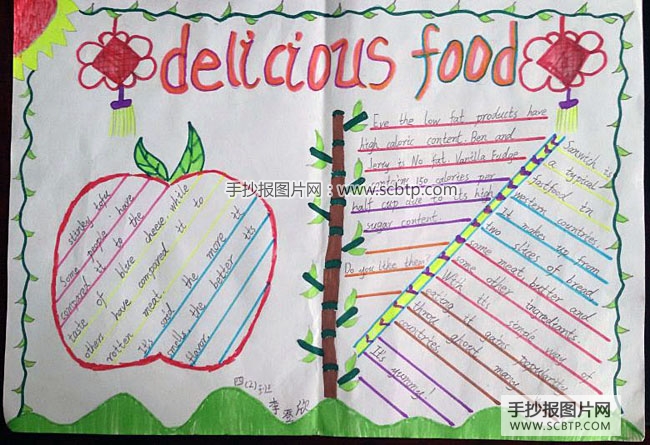 delicious food
stinky tofu
Some people have
compared it to the
taste of blue cheese, while
others have compared it to
rotten meat.
It's said the more it
smells, the better its
flavor.
Eve the low fat products have
high caloric content. Ben and
Jerry is No fat Vanilla Fudge
contains 150 calories per
half cup due to its high
sugar content.
Do you like them?
Sanwich is
a typical
fastfood in
western countries.
It makes up from
two slices of bread,
some meat, butter and
some other ingredients.
With its simple way of
eating, it gains popularity
countries.
It's yummy!
四(2)班
李
欣
手抄报图片网：www.scbtp.com
手抄报图片网
WWW.SCBTP.COM